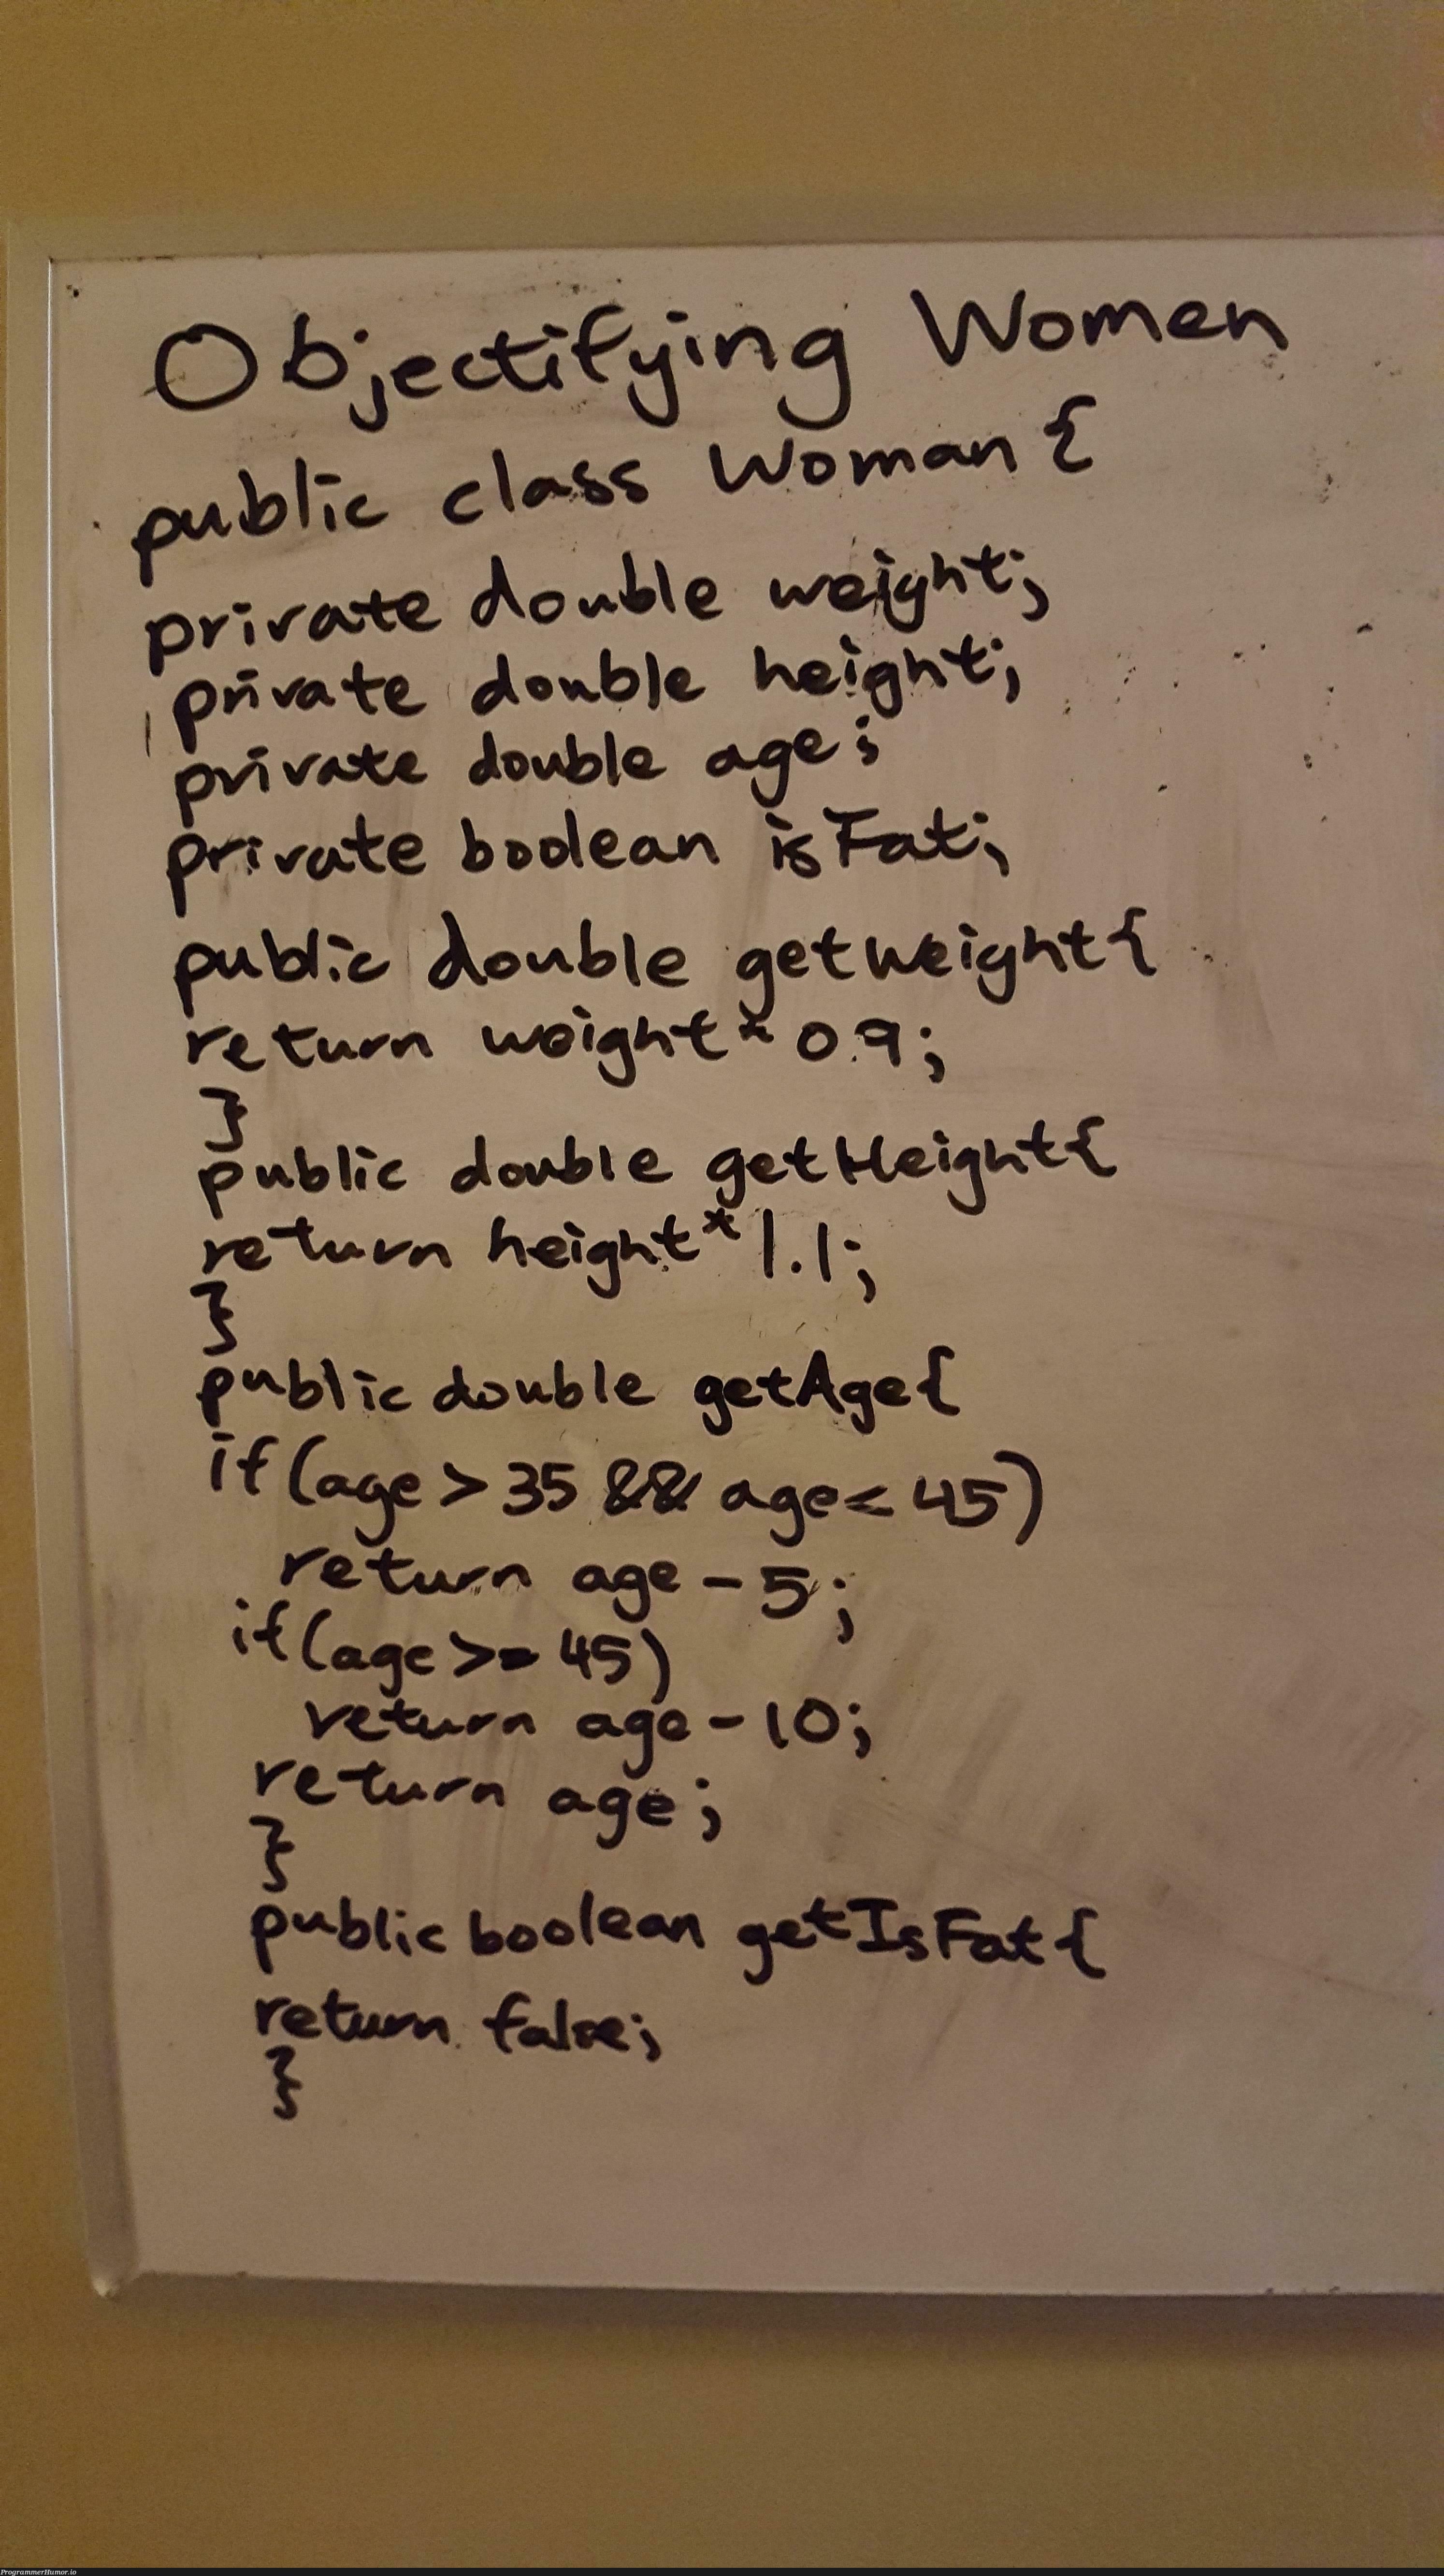 Objectifying Women
public class Woman {
private double weight;
private double height;
private double age;
private boolean isFat;
public double getWeight{
return weight*0.9;
}
public double getHeight{
return height*1.1;
}
public double getAge{
if(age>35 && age<45)
return age-5;
if(age>=45)
return age-10;
return age;
}
public boolean getIsFat{
return false;
}
ProgrammerHumor.io